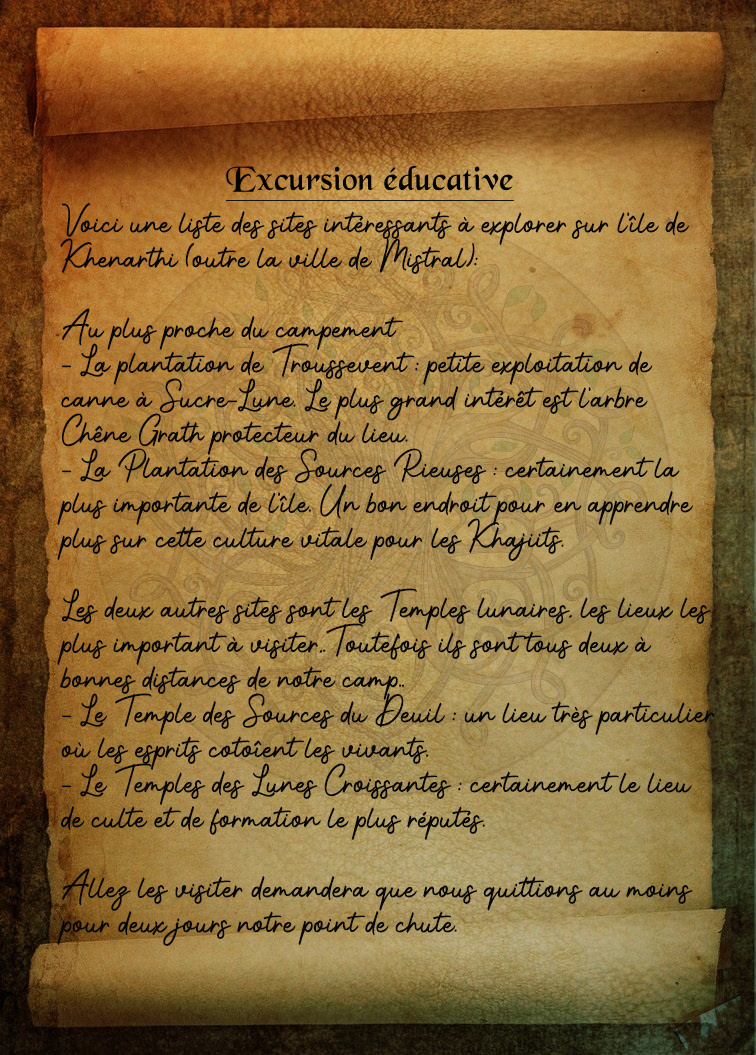 Excursion éducative
Voici une liste des sites intéressants à explorer sur l'île de
Khenarthi (outre la ville de Mistral):
Au plus proche du campement
- La plantation de Troussevent : petite exploitation de
canne à Sucre-Lune. Le plus grand intérêt est l'arbre
Chêne Grath protecteur du lieu.
- La Plantation des Sources Rieuses : certainement la
plus importante de l'île. Un bon endroit pour en apprendre
plus sur cette culture vitale pour les Khajiits.
Les deux autres sites sont les Temples lunaires. les lieux les
plus important à visiter.. Toutefois ils sont tous deux à
bonnes distances de notre camp..
- Le Temple des Sources du Deuil : un lieu très particulier
où les esprits cotoîent les vivants.
- Le Temples des Lunes Croissantes : certainement le lieu
de culte et de formation le plus réputés.
Allez les visiter demandera que nous quittions au moins
pour deux jours notre point de chute.